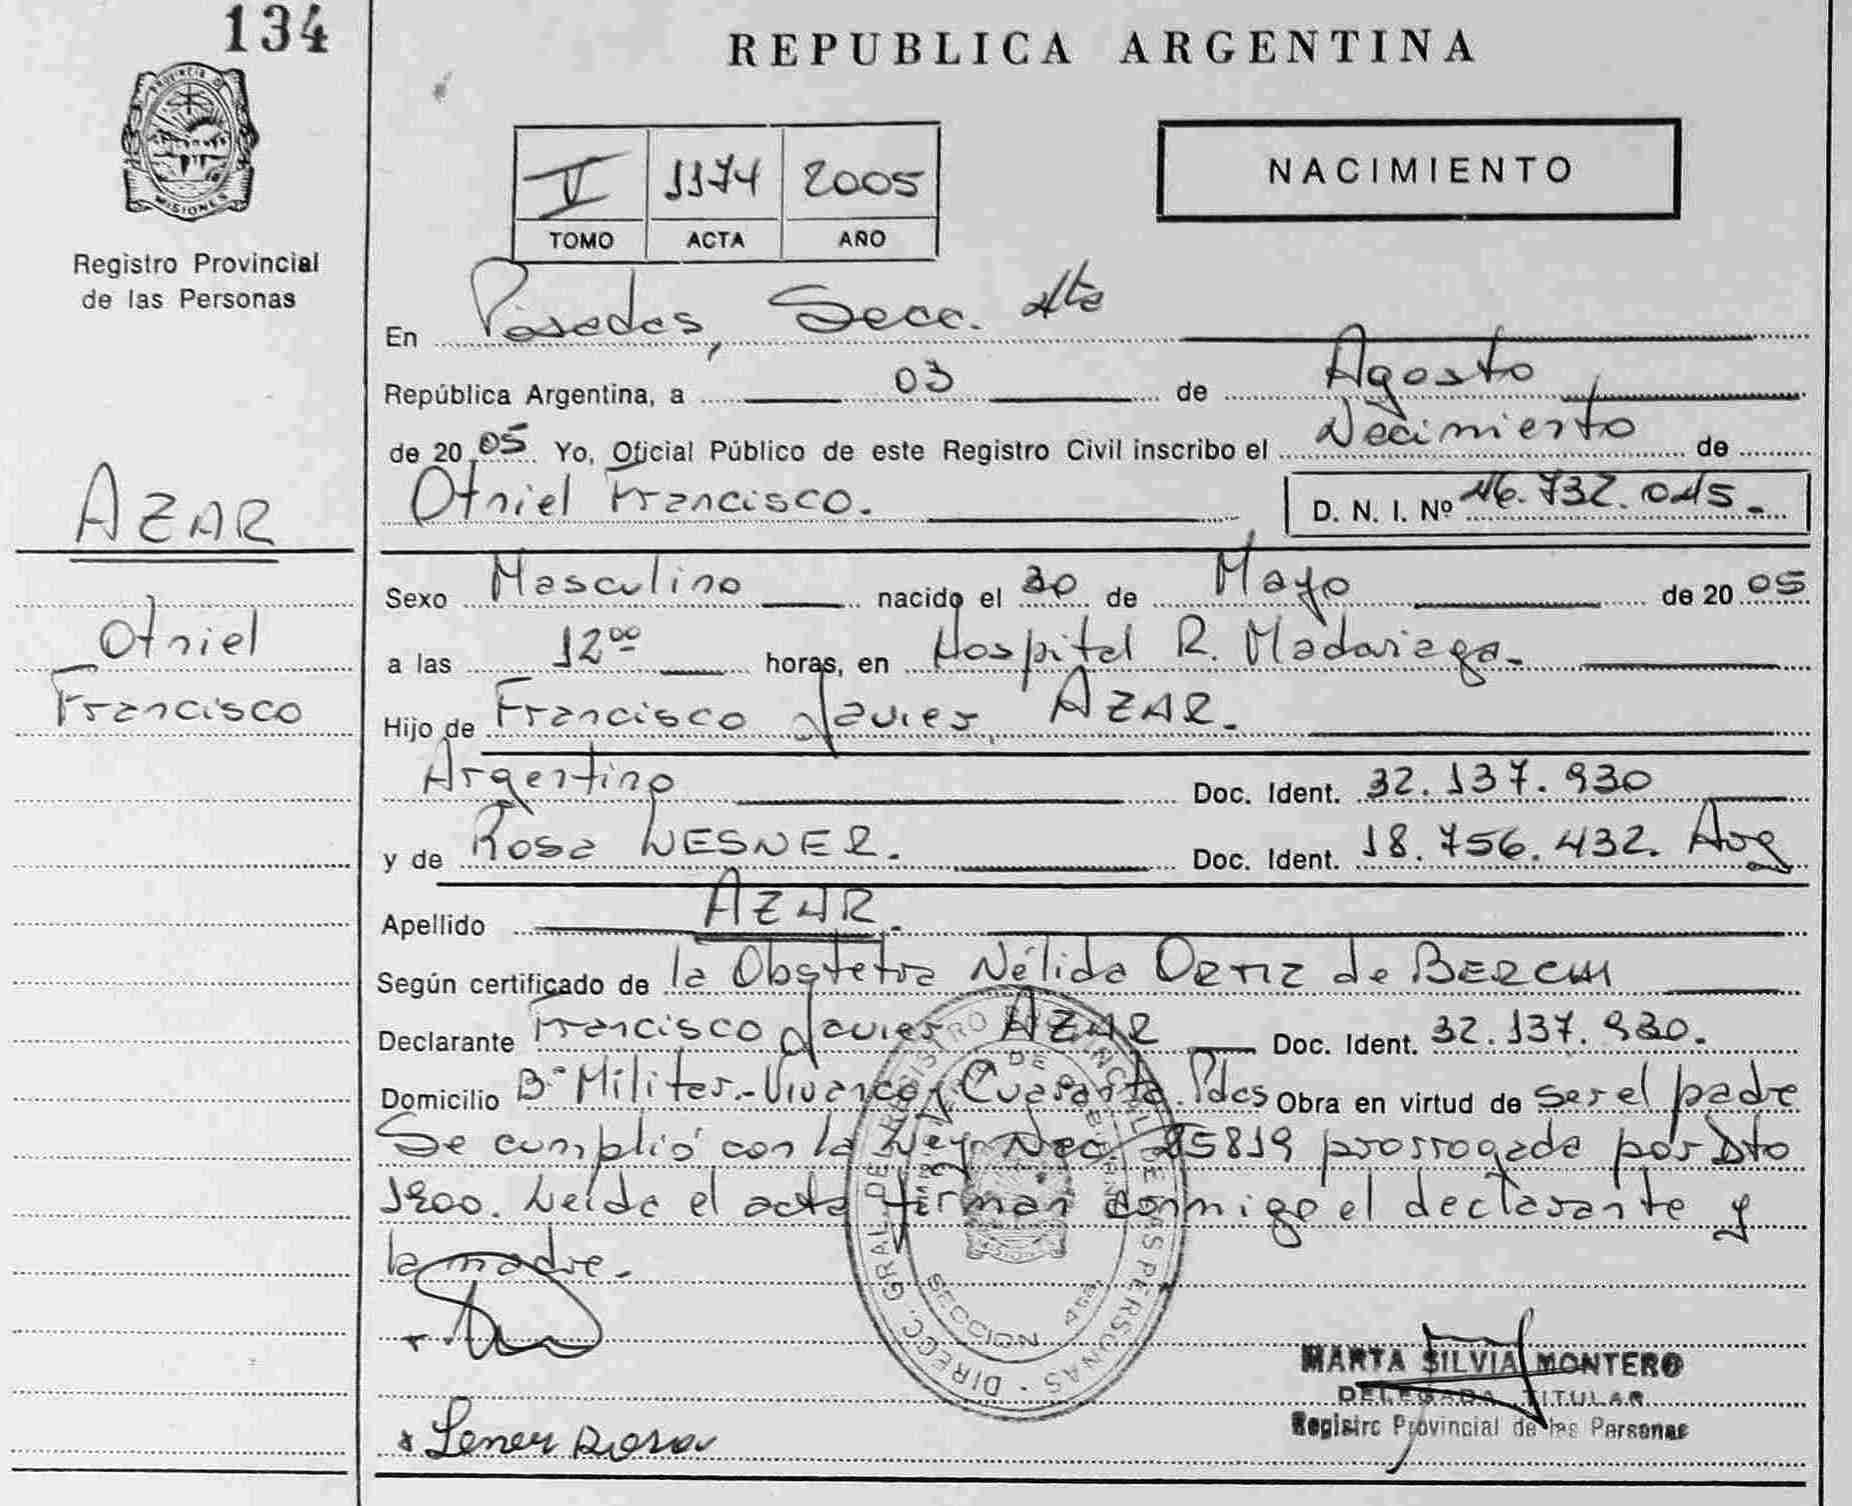 134
REPUBLICA ARGENTINA
PROVINCIA DE
MISIONES
Registro Provincial
de las Personas
V 1174 2005
TOMO ACTA AÑO
NACIMIENTO
En Posadas, Secc. 4ta
República Argentina, a 03 de Agosto
de 2005 Yo, Oficial Público de este Registro Civil inscribo el Nacimiento de
Otniel Francisco. D. N. I. Nº 46.732.045.-
AZAR
Otniel
Francisco
Sexo Masculino nacido el 30 de Mayo de 2005
a las 12⁰⁰ horas, en Hospital R. Madariaga.
Hijo de Francisco Javier, AZAR.
Argentino Doc. Ident. 32.137.930
y de Rosa LESNER. Doc. Ident. 18.756.432. Arg
Apellido AZAR.
Según certificado de la Obstetra Nélida ORTIZ de BERCHI
Declarante Francisco Javier AZAR Doc. Ident. 32.137.930.
Domicilio Bº Militar.- Vivanco y Cuaranta. Pdas Obra en virtud de ser el padre
Se cumplió con la Ley Nac. 25819 prorrogada por Dto
1900. Leída el acta firman conmigo el declarante y
la madre.-
DIRECC. GRAL DE REGISTRO PROVINCIAL DE LAS PERSONAS
SECCION 4ta
MARTA SILVIA MONTERO
DELEGADA TITULAR
Registro Provincial de las Personas
Lener Rosa